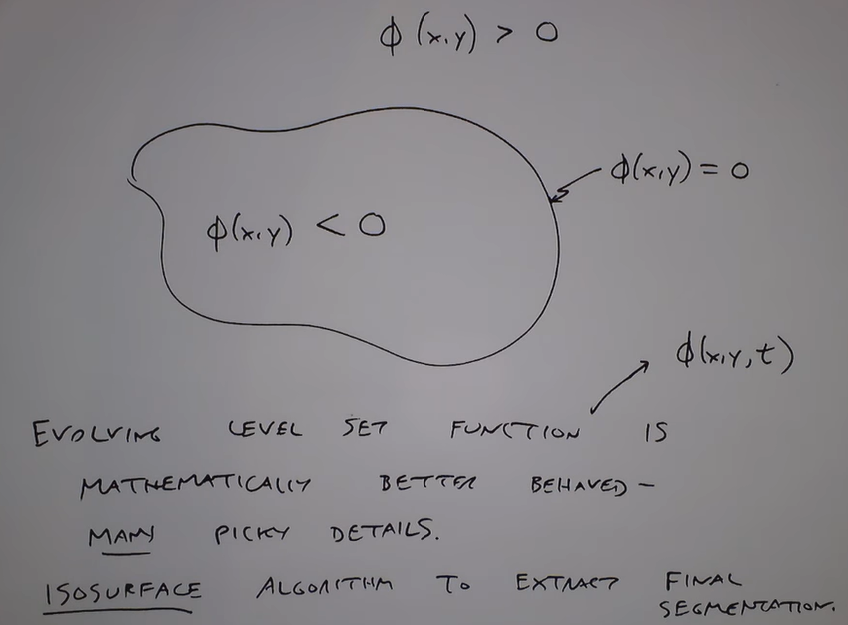 ϕ(x,y) > 0
ϕ(x,y) = 0
ϕ(x,y) < 0
ϕ(x,y,t)
EVOLVING LEVEL SET FUNCTION IS
MATHEMATICALLY BETTER BEHAVED -
MANY PICKY DETAILS.
ISOSURFACE ALGORITHM TO EXTRACT FINAL
SEGMENTATION.